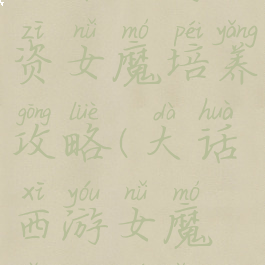 zī nǚ mó péi yǎng
资女魔培养
gōng lüè dà huà
攻略(大话
xī yóu nǚ mó
西游女魔